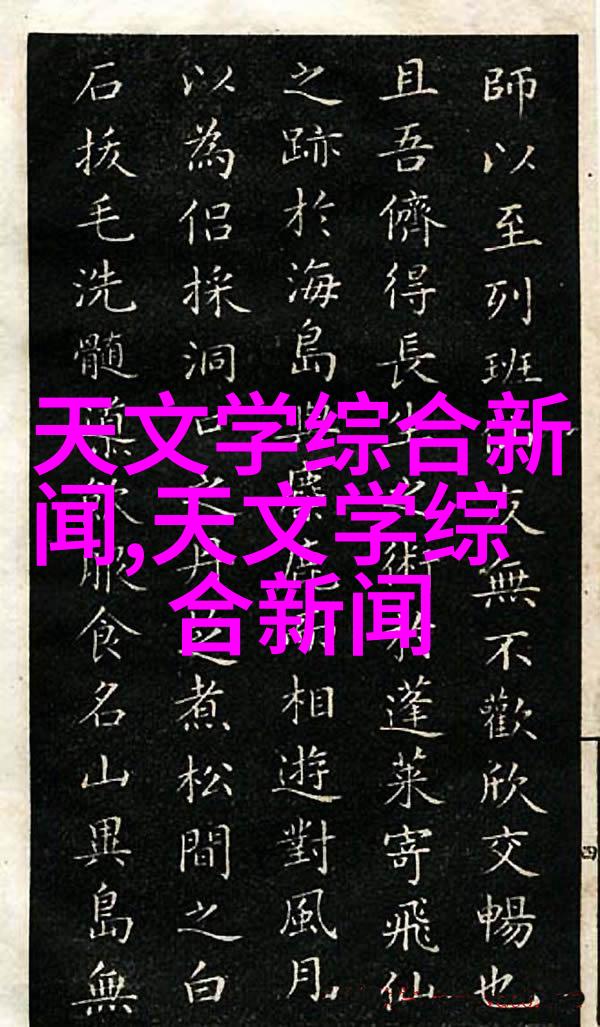 天文学综合新
闻,天文学综
合新闻
師以至列班友無不歡欣交暢也
且吾儕得長生之術於蓬萊寄飛仙
之跡於海島鹿相遊對風月
以為侶採洞口之丹煮松間之白
石拔毛洗髓飲服食名山異島無
四